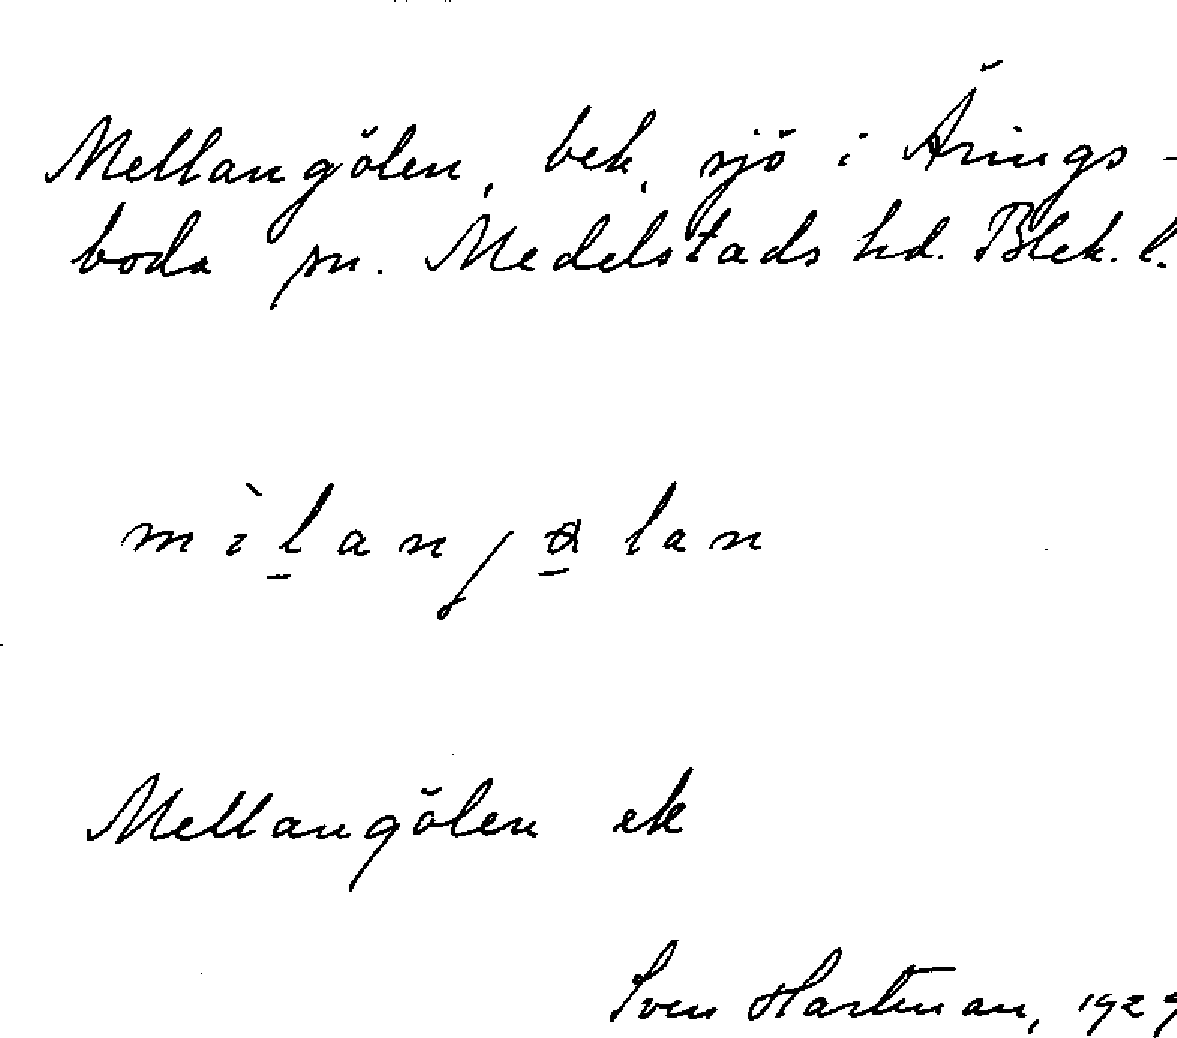 Mellangölen, bek. sjö i Årings-
boda sn. Medelstads hd. Blek. l.
Mellangölen ek
Sven Hartman, 1929